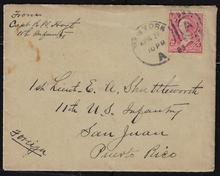 From
Capt. R. W. Hoyt
11th Infantry
1st Lieut. E. A. Shuttleworth
11th U.S. Infantry
San Juan
Puerto Rico
Foreign
YORK
10 PM
A